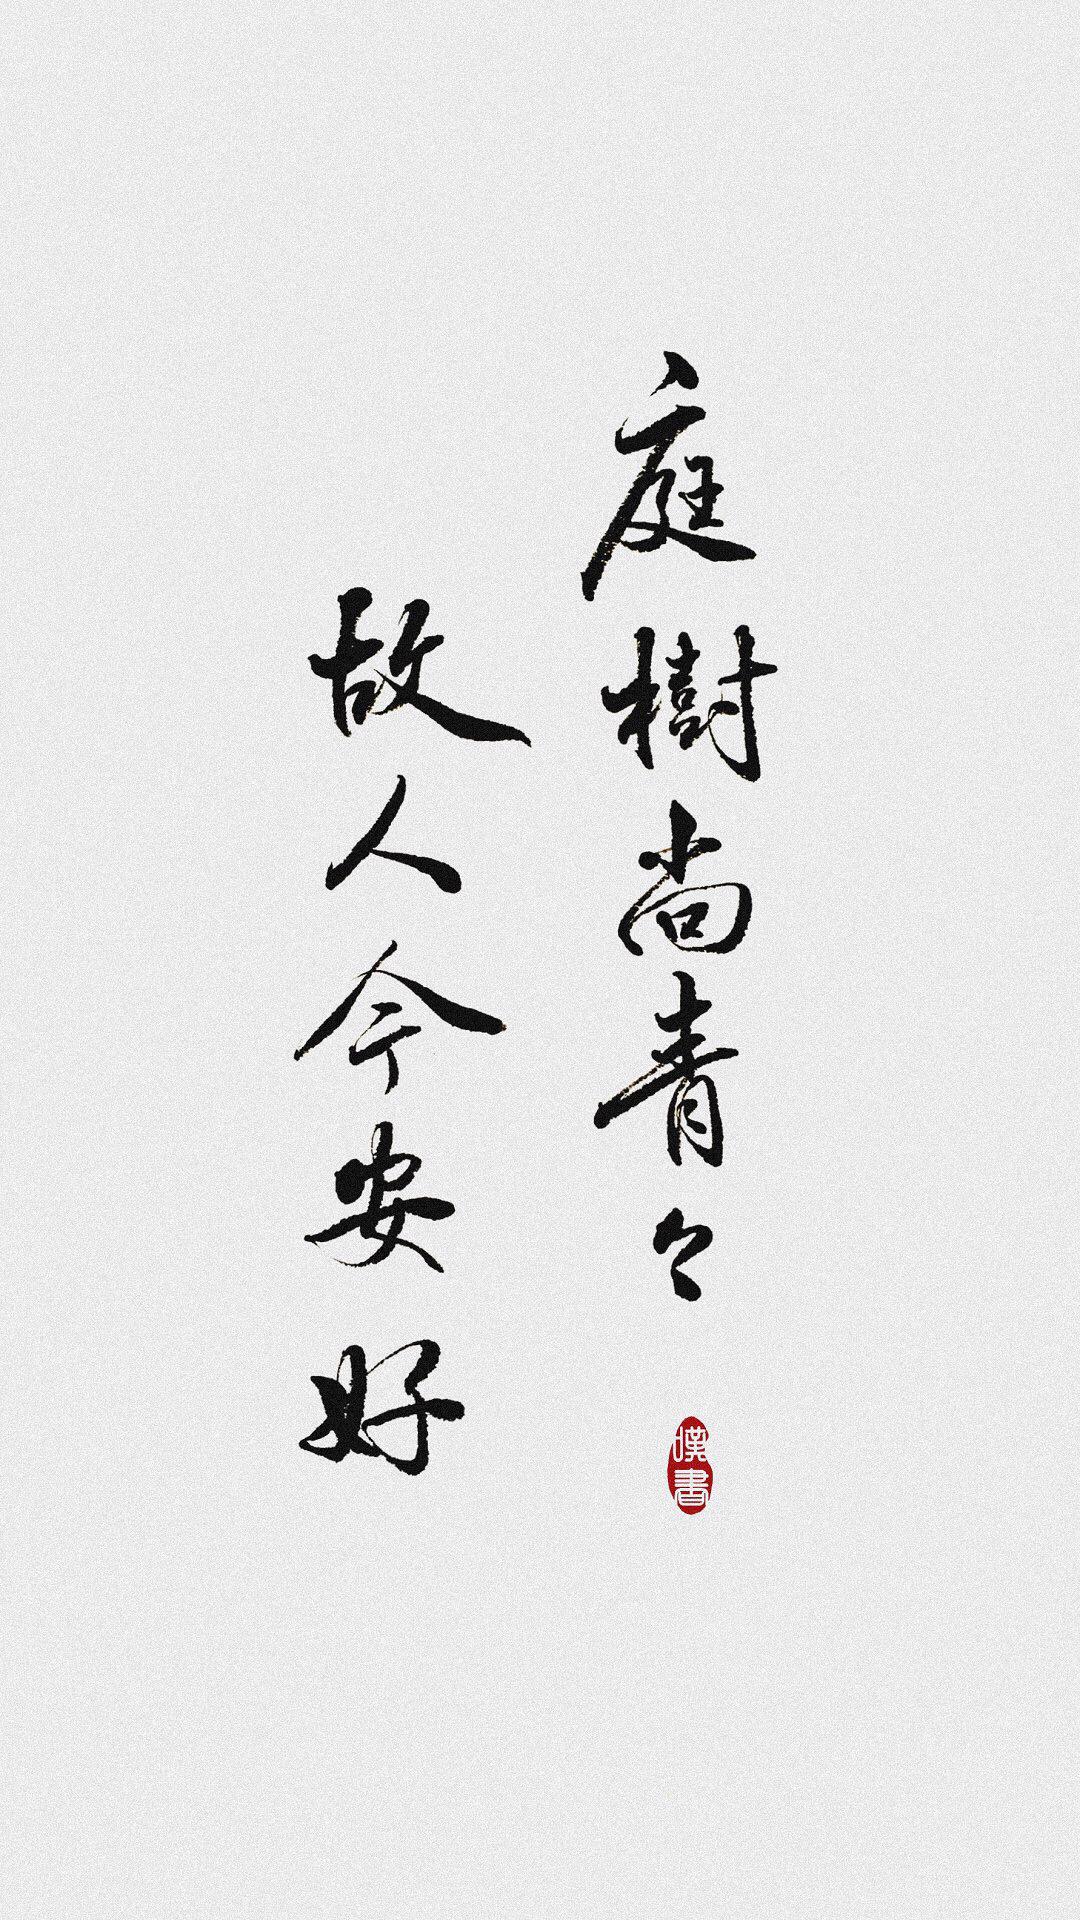 庭樹尚青々
故人今安好
書